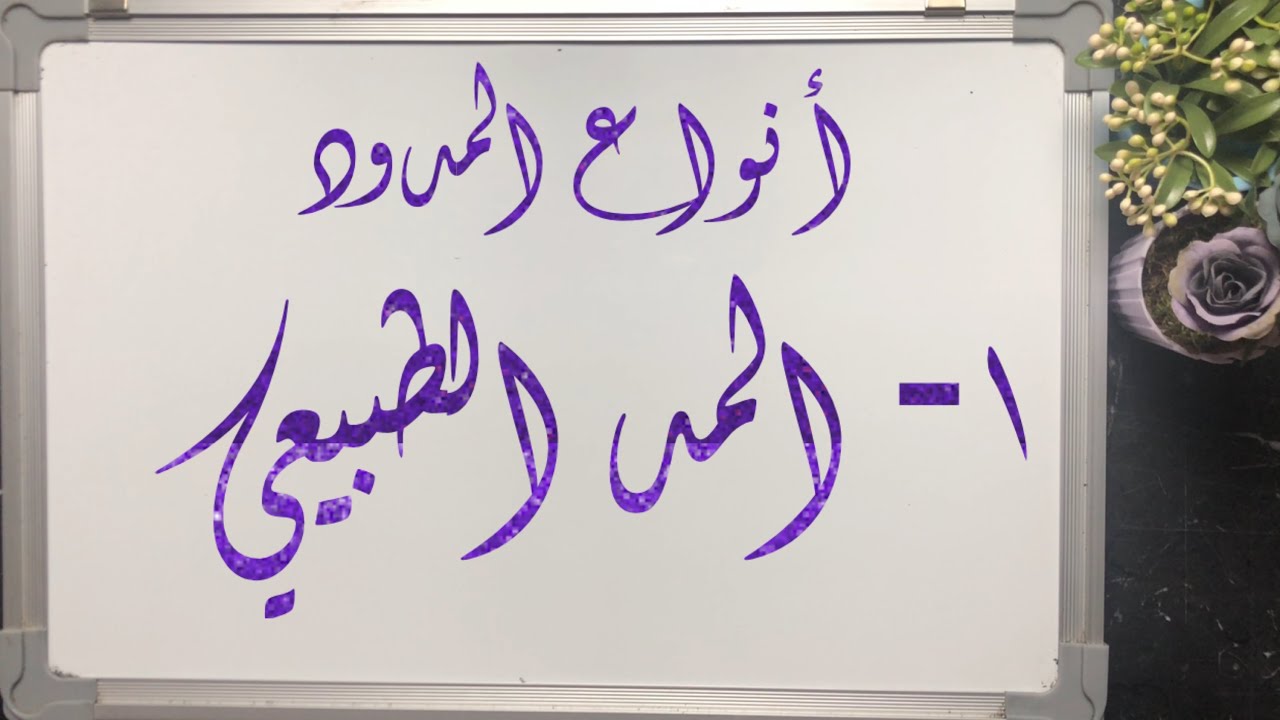 أنواع المدود
١- المد الطبيعي